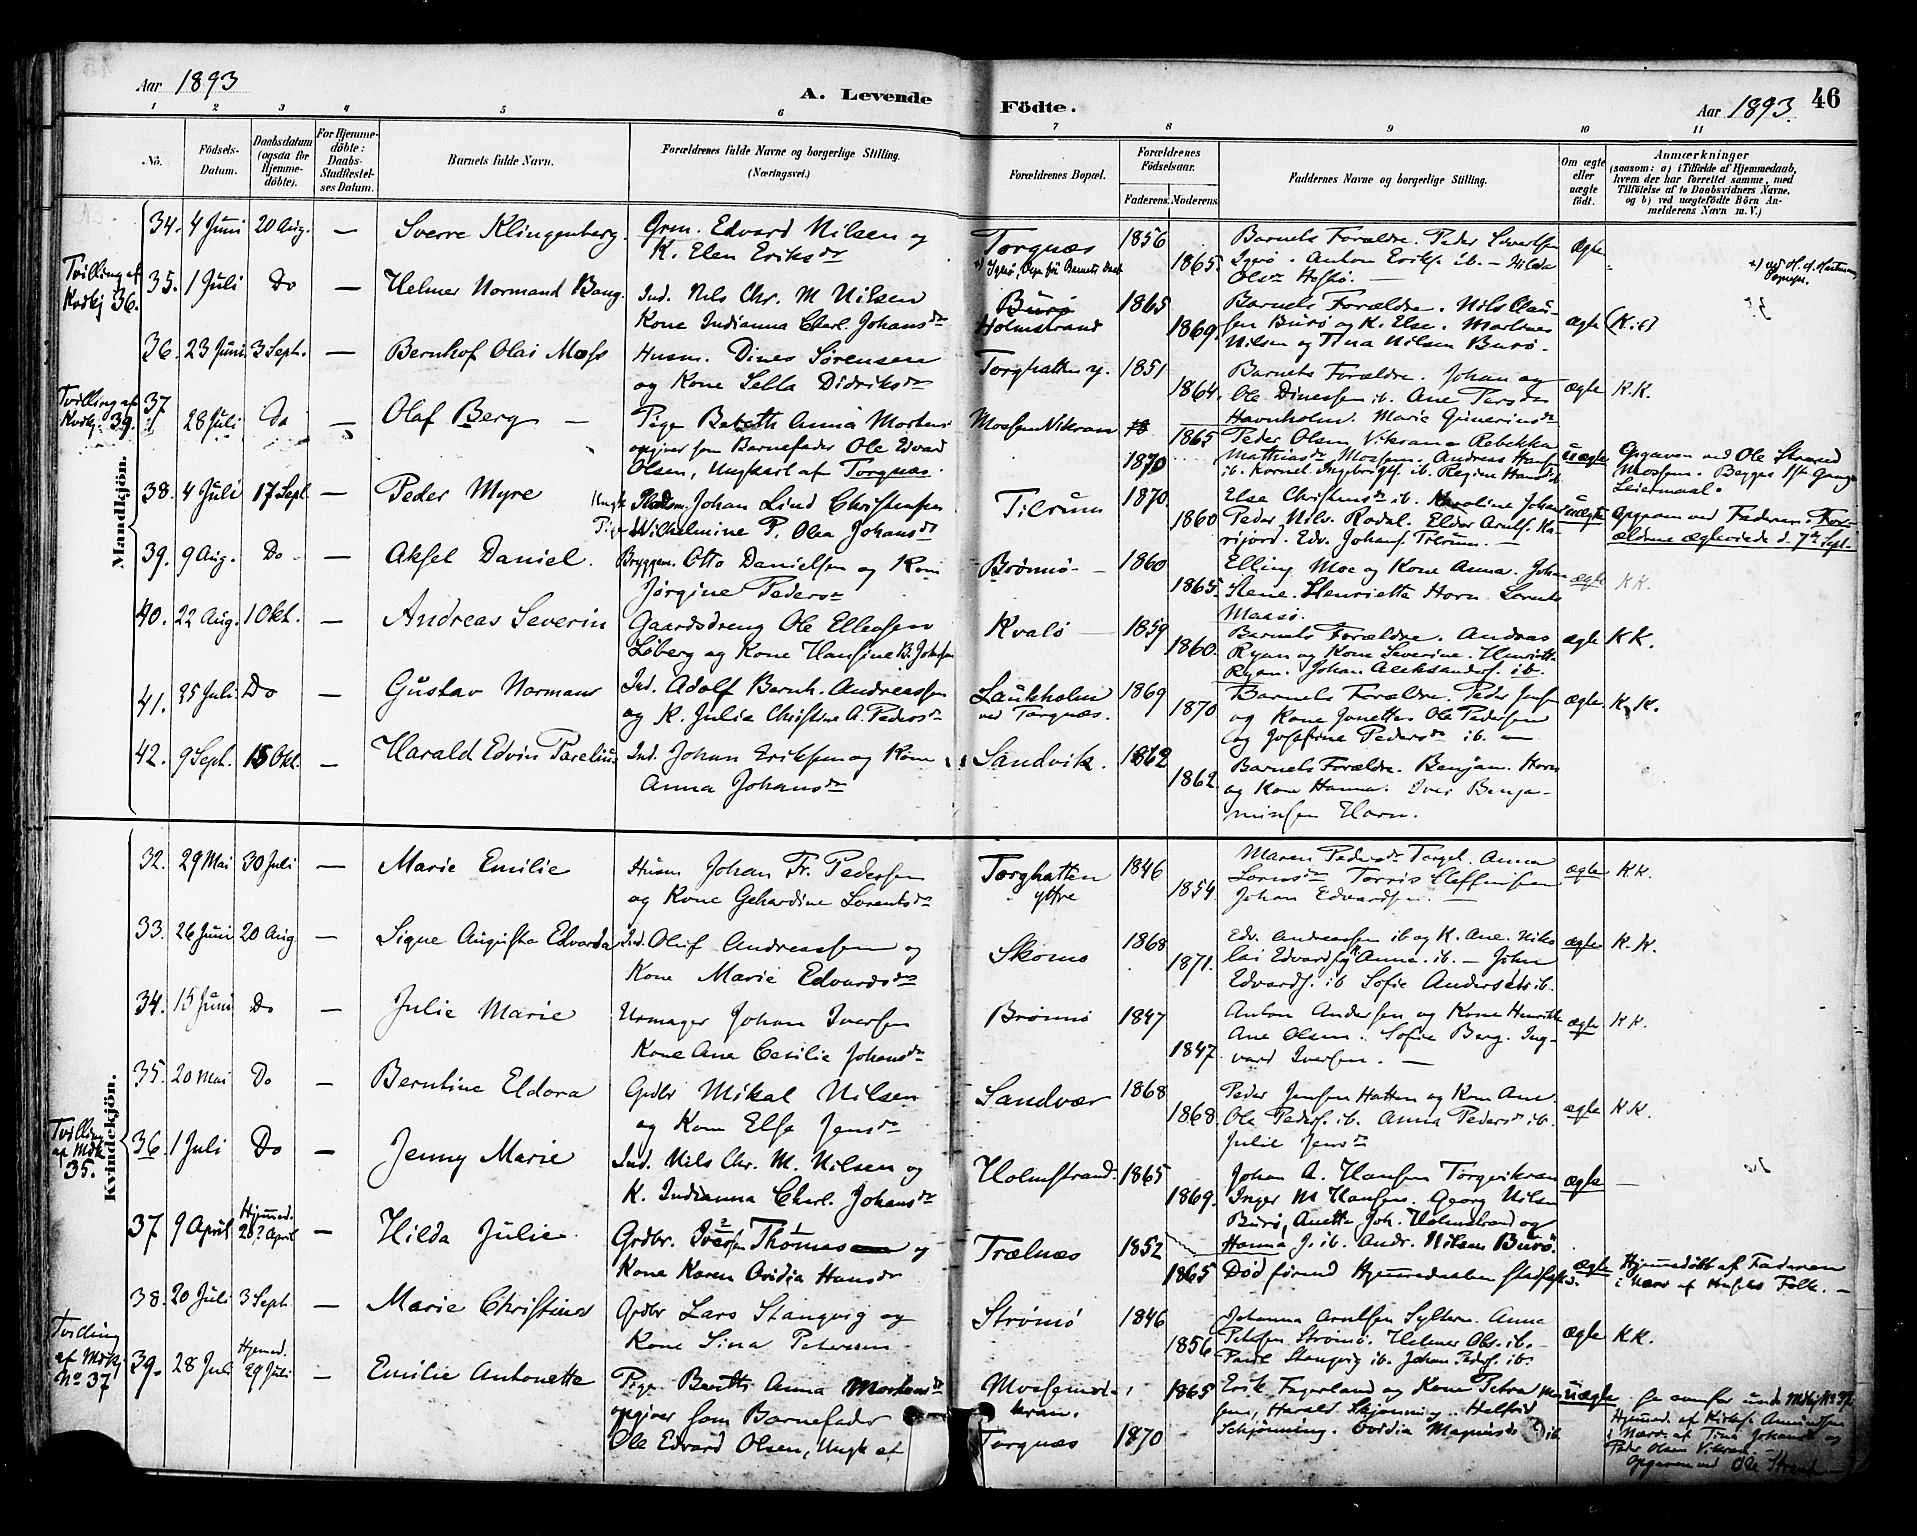 Aar 1893
A. Levende
Födte.
Aar 1893.
46
1 2 3 4 5 6 7 8 9 10 11
No.
Födsels-
Datum.
Daabsdatum
(ogsaa for
Hjemme-
döbte).
For Hjemme-
döbte:
Daabs-
Stadfæstel-
ses Datum.
Barnets fulde Navn.
Forældrenes fulde Navne og borgerlige Stilling.
(Næringsvei.)
Forældrenes Bopæl.
Forældrenes
Födselsaar.
Faderens. Moderens.
Faddernes Navne og borgerlige Stilling.
Om ægte
eller
uægte
födt.
Anmærkninger
(saasom: a) i Tilfælde af Hjemmedaab,
hvem der har forrettet samme, med
Tilföielse af to Daabsvidners Navne,
og b) ved uægtefödte Börn An-
melderens Navn m. V.)
Mandkjön.
34. 4 Juni 20 Aug. — Sverre Klingenberg.
Edvard Nilsen og
K. Elen Eriksdr
Torgnæs
1856
1865.
Barnets Forældre. Peder Edvartsen
Anton Eriks. ib. — Hilda
ægte
Tvilling af
Kvdkj 36.
35. 1 Juli Do — Helmer Normand Bang.
Ind. Nils Chr. M Nilsen
Kone Indianna Charl. Johansdr
Burø
Holmstrand
1865
1869
Barnets Forældre. Nils Clau-
sen Burø og K. Else. Martines
Nilsen og Tina Nilsen Burø.
ægte
36. 23 Juni 3 Sept. — Bernhof Olai Moss
Husm. Dines Sørensen
og Kone Sella Didriksdr
Torghatten y.
1851
1864.
Barnets Forældre. Johan og
Ole Dinessen ib. Ane
Havnholm. Marie
ægte K.K.
Tvilling af
Kvdkj. 39.
37 28 Juli Do — Olaf Berg —
Pige Bereth Anna Mortens
opgiver som Barnefader Ole Edvard
Olsen, Ungkarl af Torgnæs.
Mossem Vikran
1865
1870
Peder Olsen Vikran. Rebekka
Mathiasdr Mossem. Andreas Hans
uægte
Opgaven ved Ole Strand
Mossem. Begges 1ste Gangs
Leiermaal.
38. 4 Juli 17 Sept. — Peder Myre
Johan Lind Christensen
Pige Wilhelmine P. Olea Johansdr
Tilrum
1870
1860
Else Christensdr ib. Karoline Johans
Peder Nilss. Rodal.
Edv. Johans. Tilrum. —
uægte
Opgaven ved Faderen. For-
ældrene ægteviede d. 7de Sept.
39. 9 Aug. Do — Aksel Daniel.
Bryggem. Otto Danielsen og Kone
Jørgine Pedersdr
Brønnø —
1860
1865.
Elling Moe og Kone Anna. Johan
Stene. Henriette Horn.
Maasø.
ægte KK.
40. 22 Aug. 1 Okt. — Andreas Severin
Gaardsdreng Ole Ellefsen
Løberg og Kone Hansine B. Johnsen
Kvalø —
1859
1860.
Barnets Forældre. Andreas
Ryan og Kone Severine. Henriette
Ryan. Johan Aleksanders. ib.
ægte KK.
41. 25 Juli Do — Gustav Normann
Ind. Adolf Bernh. Andreassen
og K. Julia Christine A. Pedersdr
Laukholm
ved Torgnæs.
1869
1870
Barnets Forældre. Peder Jensen
og Kone Jonette. Ole Pedersen
og Josefine Pedersdr ib. —
ægte K.K.
42. 9 Sept. 15 Okt. — Harald Edvin Parelius
Ind. Johan Eriksen og Kone
Anna Johansdr
Sandvik.
1862
1862.
Barnets Forældre. Benjam. Horn
og Kone Hanna. Iver Benja-
minsen Horn.
Kvindekjön.
32. 29 Mai 30 Juli — Marie Emilie
Husm Johan Fr. Pedersen
og Kone Gehardine Lorentsdr
Torghatten
yttre
1846
1854
Maren Pedersdr Torget. Anna
Lorensdr Torris Steffensen
Johan Edvardsen. —
ægte KK.
33. 26 Juni 20 Aug — Signe Augusta Edvarda
Ind. Oluf Andreassen og
Kone Marie Edvardsdr
Skomo
1868
1871.
Edv. Andreassen ib og K. Ane. Niko
lai Edvards og Anna. ib. — Johan
Edvards. ib Sofie Andersdtr ib.
ægte K.K.
34. 15 Juni Do — Julie Marie
Urmager Johan Iversen
Kone Ane Cecilie Johansdr
Brønnø
1847
1847.
Anton Andersen og Kone Henrikke
Ane Olsen. Sofie Berg. Ing-
vard Iversen. —
ægte KK.
35. 20 Mai Do — Berntine Eldora
Grdbr Mikal Nilsen
og Kone Else Jensdr
Sandvær
1868
1868
Peder Jensen Hatten og Kone Ane.
Ole Peders. ib. Anna Pedersdr ib.
Julie Jensdr
ægte KK.
Tvilling
af Mdk
35.
36. 1 Juli Do — Jenny Marie
Ind. Nils Chr. M. Nilsen og
K. Indianna Charl. Johansdr
Holmstrand.
1865
1869.
Johan A. Hansen Torgvikran
Inger M Hansen. Georg Nilsen
Burø, Anette Joh. Holmstrand og
Hanna J. ib. Andr. Nilsen Burø.
ægte —
37 9 April Hjemmed. 28? April — Hilda Julie
Grdbr. Iversen Thomas og
Kone Karen Ovidia Hansdr
Trælnæs
1852
1865
Død førend Hjemmedaaben stadfæstedes.
ægte
Hjemmedøbt af Faderen
i Nærv. af Husets Folk. —
38. 20 Juli 3 Sept — Marie Christine
Grdbr Lars Stangvig og
Kone Sina Petersen
Strømø
1846
1856
Johanna Arntsen Sylten. Anna
Petersen Strømø. Helmer Ols. ib.
Paul Stangvig ib. Johan Peders. ib.
ægte KK.
Tvilling
af Mdkj
No 37
39. 28 Juli Hjemmed. 29 Juli — Emilie Antonette
Pige Bereth Anna Mortensdr
opgiver som Barnefader
Ole Edvard Olsen, Ungk af
Torgnæs
1865
1870
Erik Fagerland og Kone Petra
Harald Skjønning. Halfrid
Schjønning. Ovidia Magnusdr ib
uægte
Se ovenfor under Mdkj No 37.
Hjemmed. af
i Nærv. af Tina Johansdr og
Peder Olsen Vikran.
Opgaven ved Ole Strand —